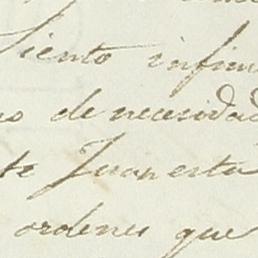 Siento infin
o de necesidad
te Juan esta
ordenes que